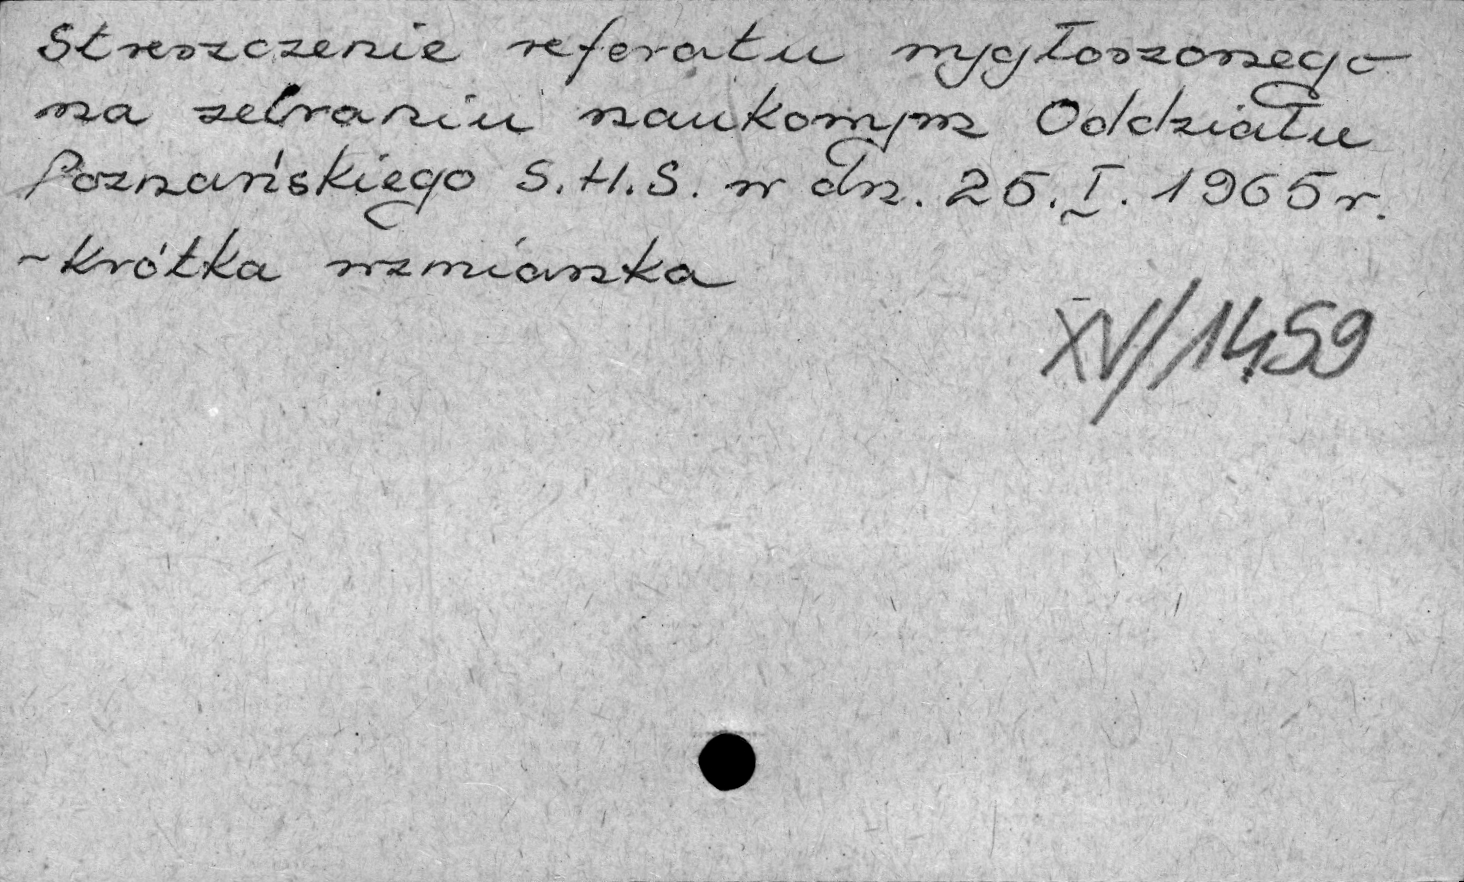 Streszczenie referatu wygłoszonego
na zebraniu naukowym Oddziału
Poznańskiego S.H.S. w dn. 25. I. 1965 r.
~ Krótka wzmianka
XV/1459